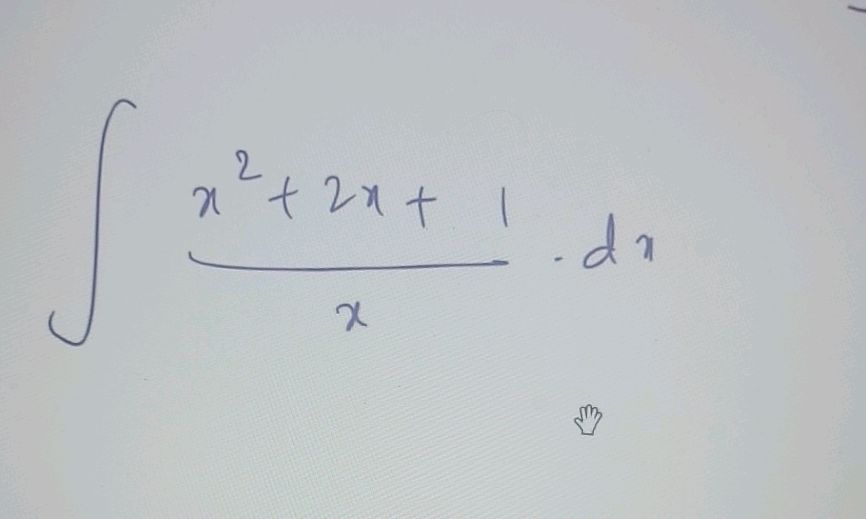 ∫ x² + 2x + 1 / x . dx